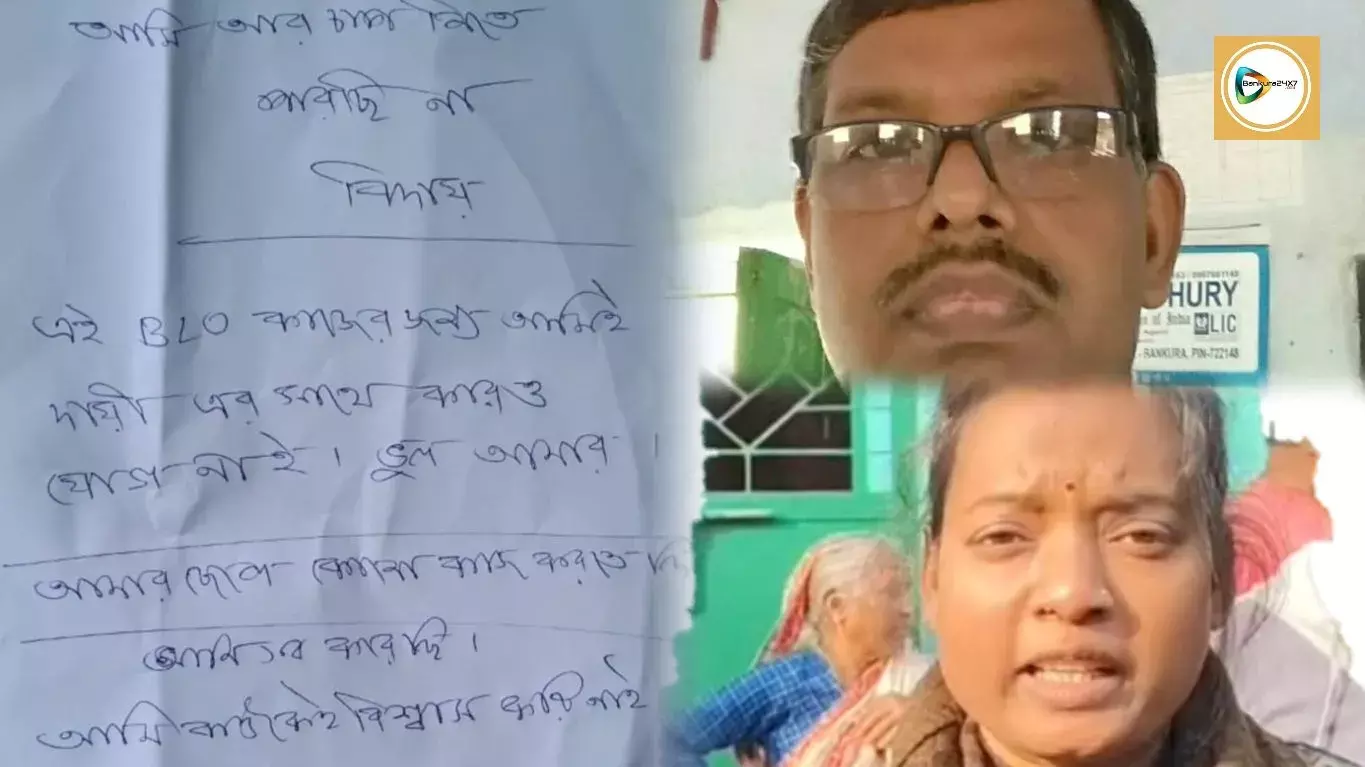 আমি আর চাপ নিতে
পারছি না
বিদায়
এই BLO কাজের জন্য আমিই
দায়ী এর সাথে কারও
যোগ নাই। ভুল আমার।
আমার ছেলে কোনো কাজ করতে
আমি সব করছি।
আমি কাউকেই বিশ্বাস করি নাই
Bankura24X7
HURY
of India LIC
- BANKURA, PIN-722148